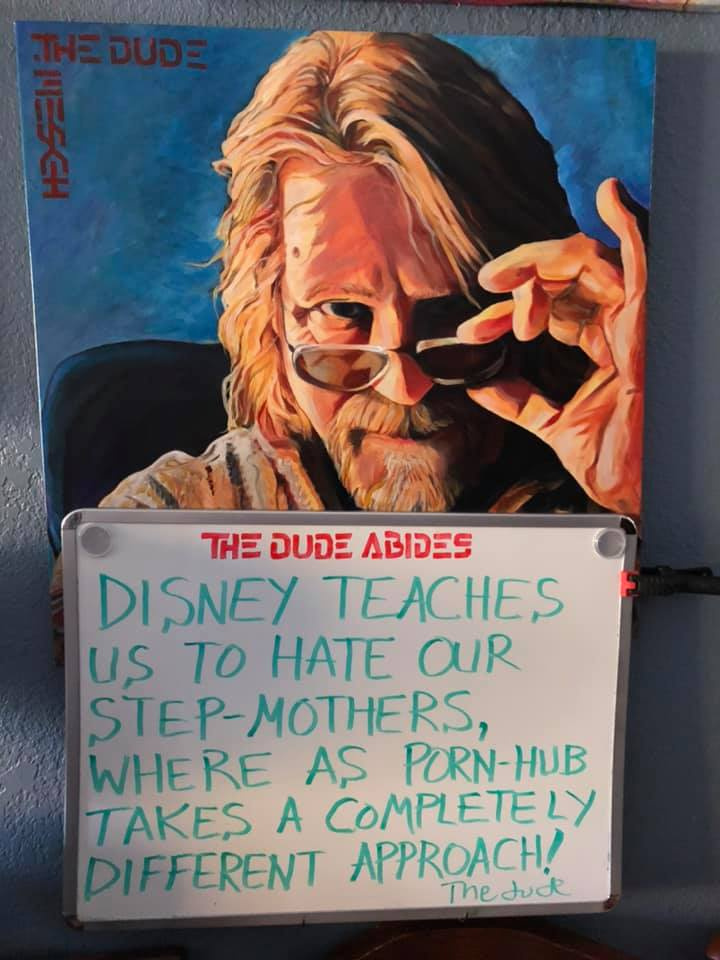 THE DUDE
THE DUDE ABIDES
DISNEY TEACHES
US TO HATE OUR
STEP-MOTHERS,
WHERE AS PORN-HUB
TAKES A COMPLETELY
DIFFERENT APPROACH!
The dude